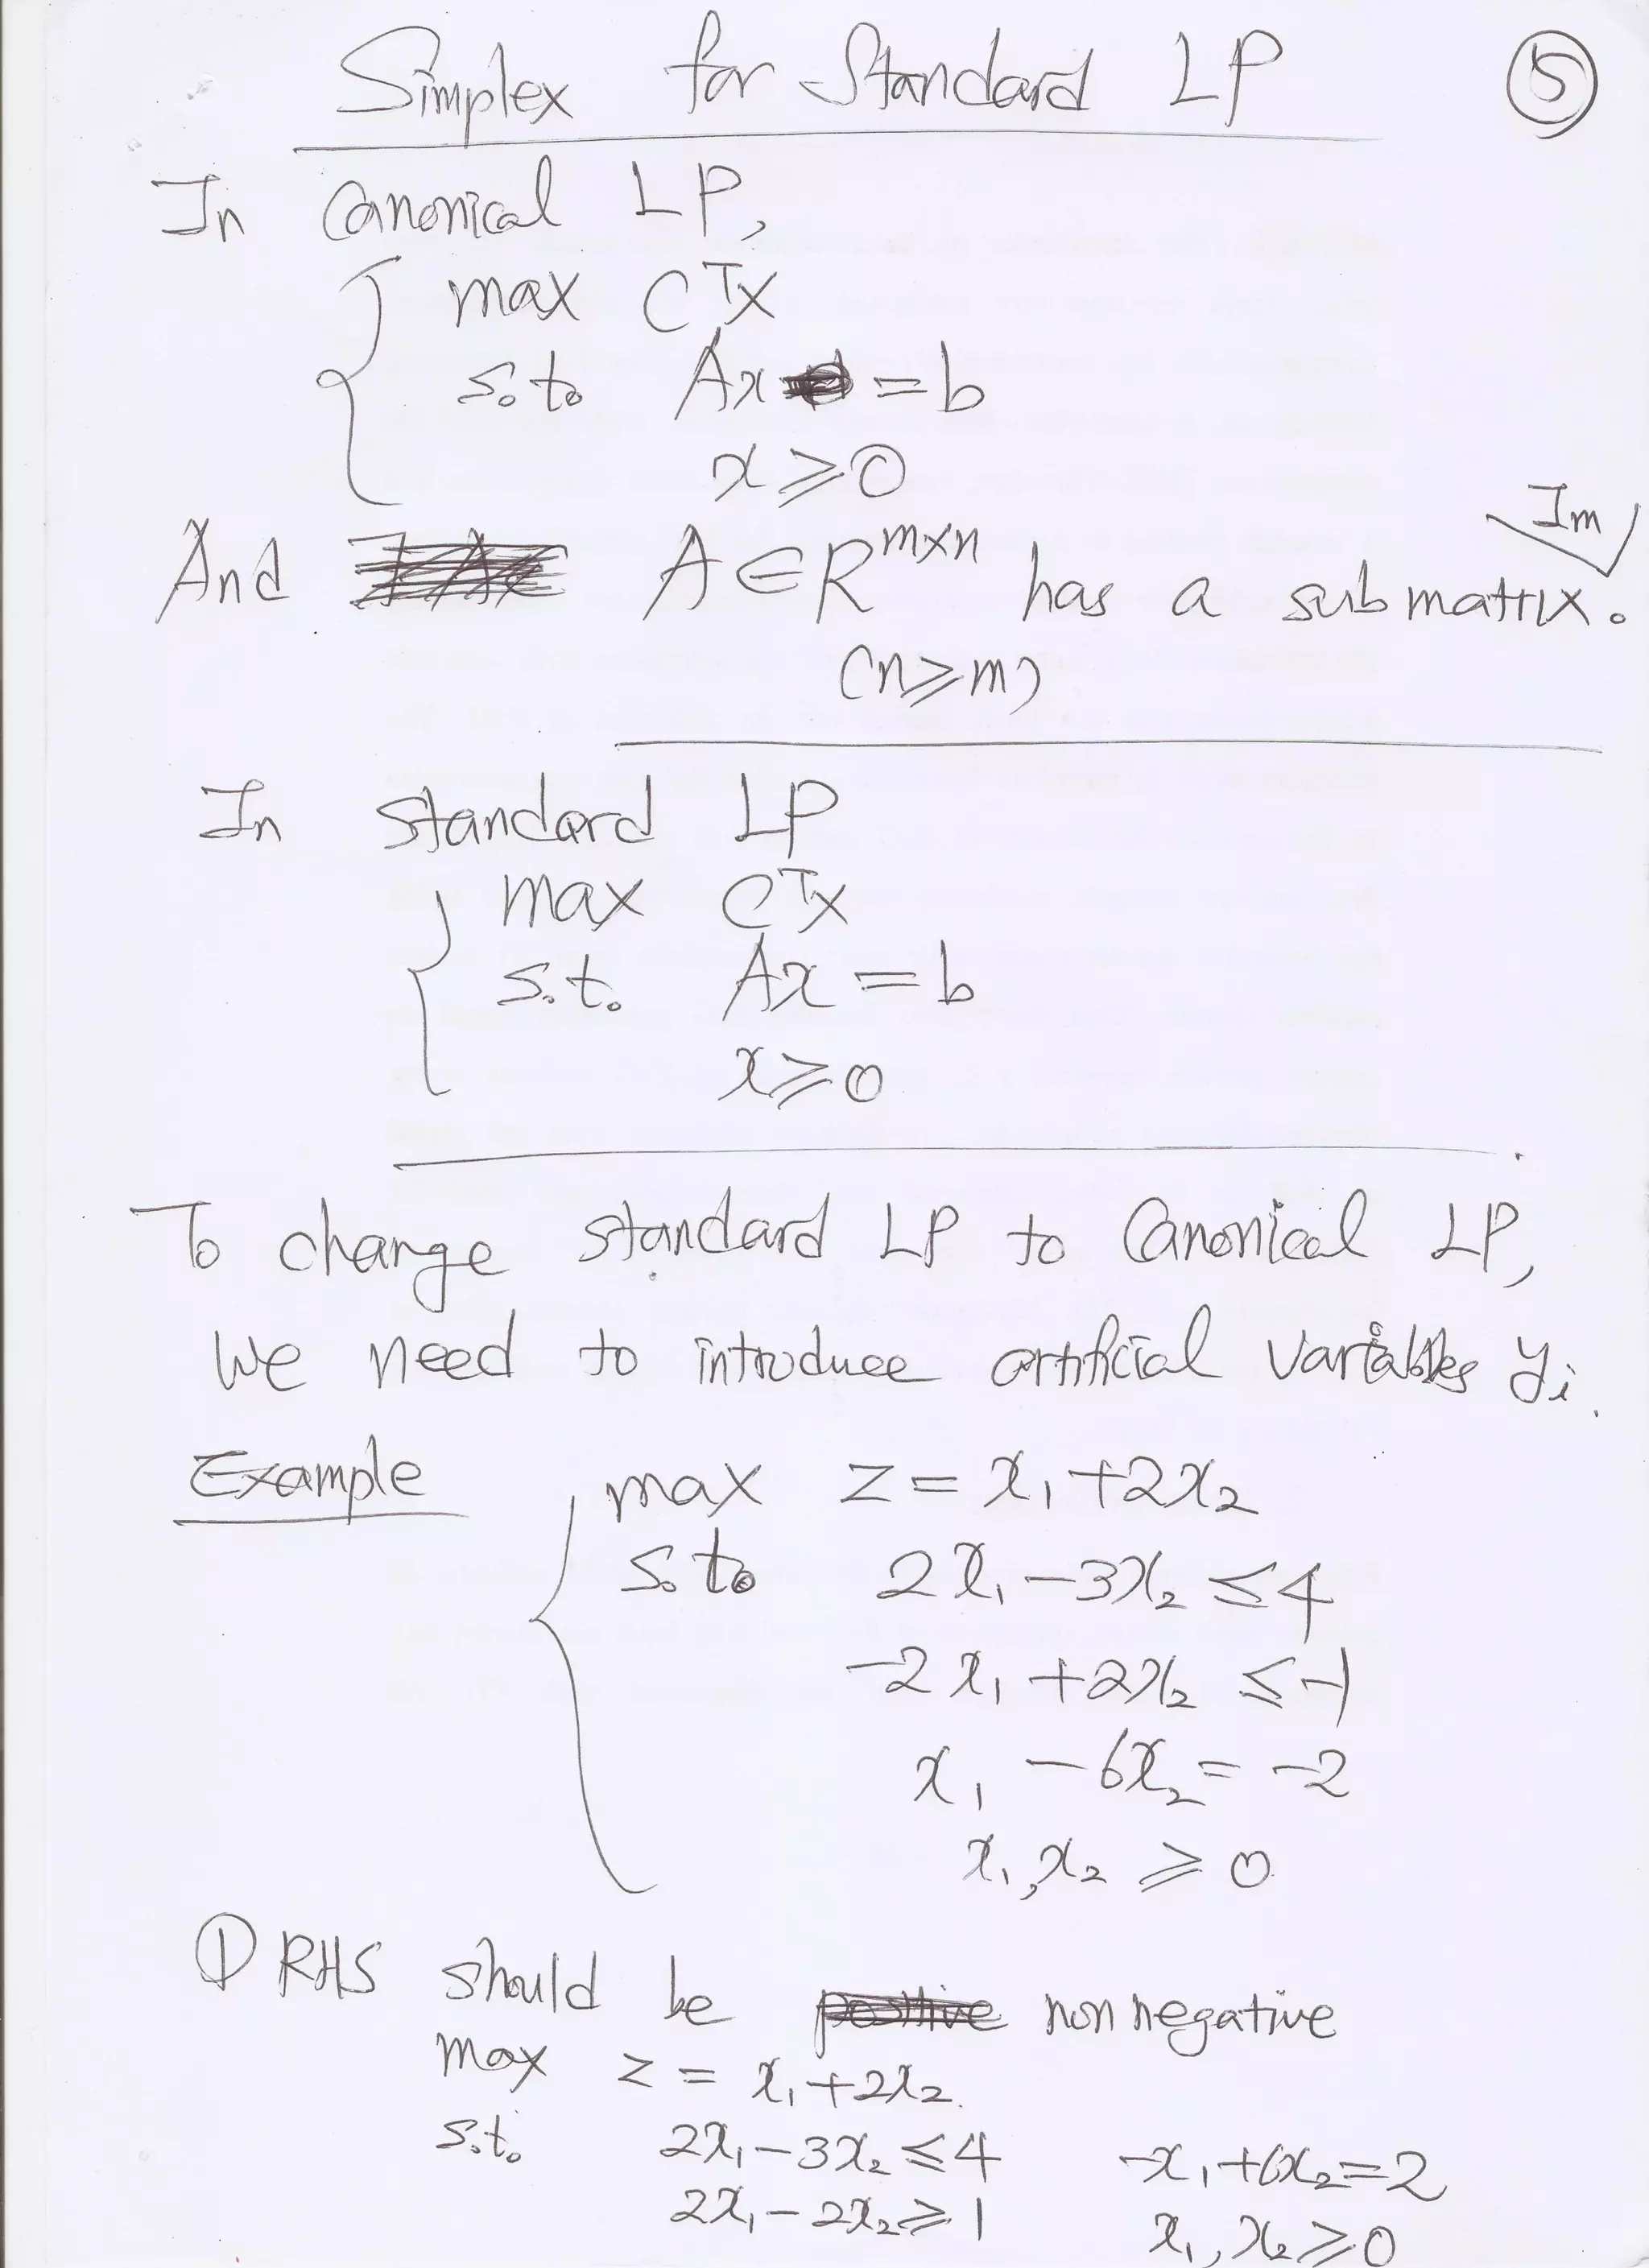 Simplex for Standard LP ⑤
In Canonical LP,
max Cᵀx
s.to Ax = b
x ≥ 0
Im
And A ∈ R^{m×n} has a submatrix.
(n ≥ m)
In standard LP
max Cᵀx
s.t. Ax = b
x ≥ 0
To change standard LP to Canonical LP,
we need to introduce artificial variables yᵢ.
Example max z = x₁ + 2x₂
s.to 2x₁ − 3x₂ ≤ 4
−2x₁ + 2x₂ ≤ −1
x₁ − 6x₂ = −2
x₁, x₂ ≥ 0
① RHS should be positive non negative
max z = x₁ + 2x₂
s.t. 2x₁ − 3x₂ ≤ 4 −x₁ + 6x₂ = 2
2x₁ − 2x₂ ≥ 1 x₁, x₂ ≥ 0